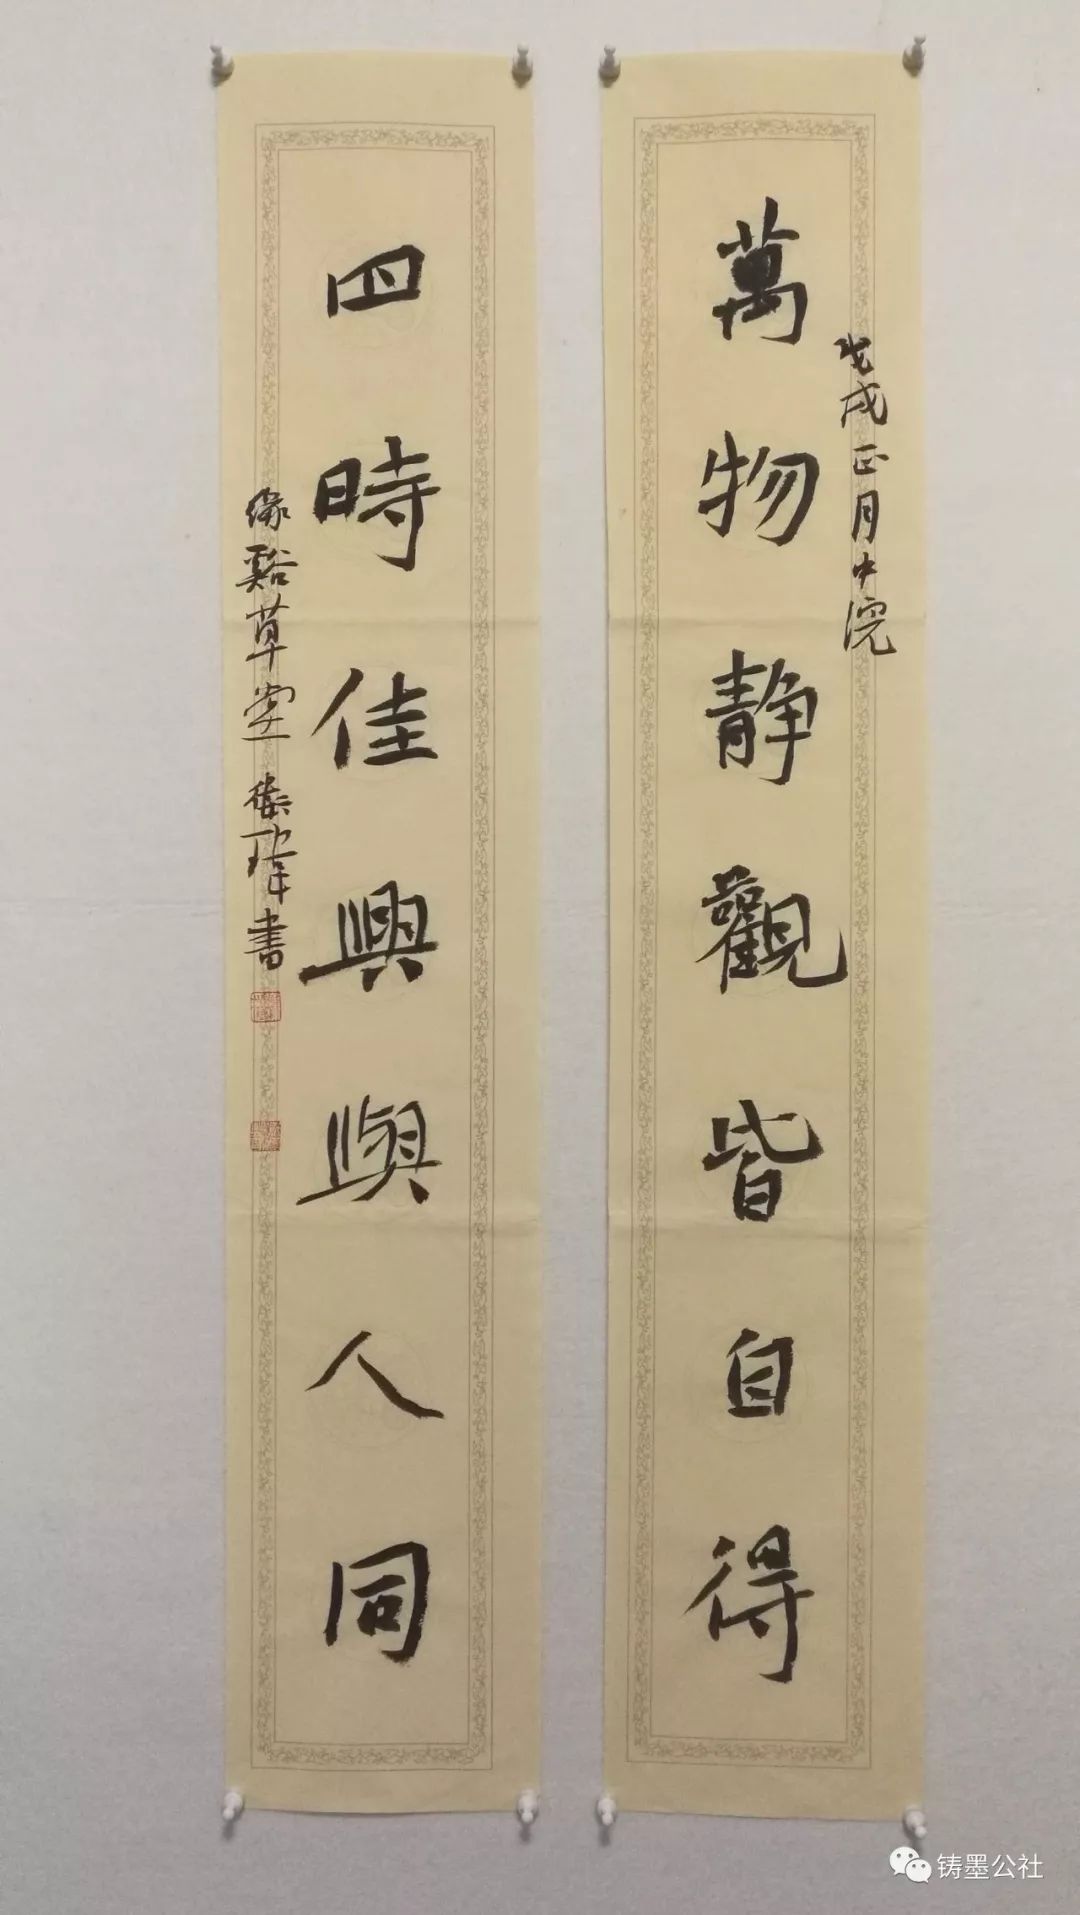 萬物静觀皆自得
戊戌正月中浣
四時佳興與人同
緣谿草堂
書
铸墨公社